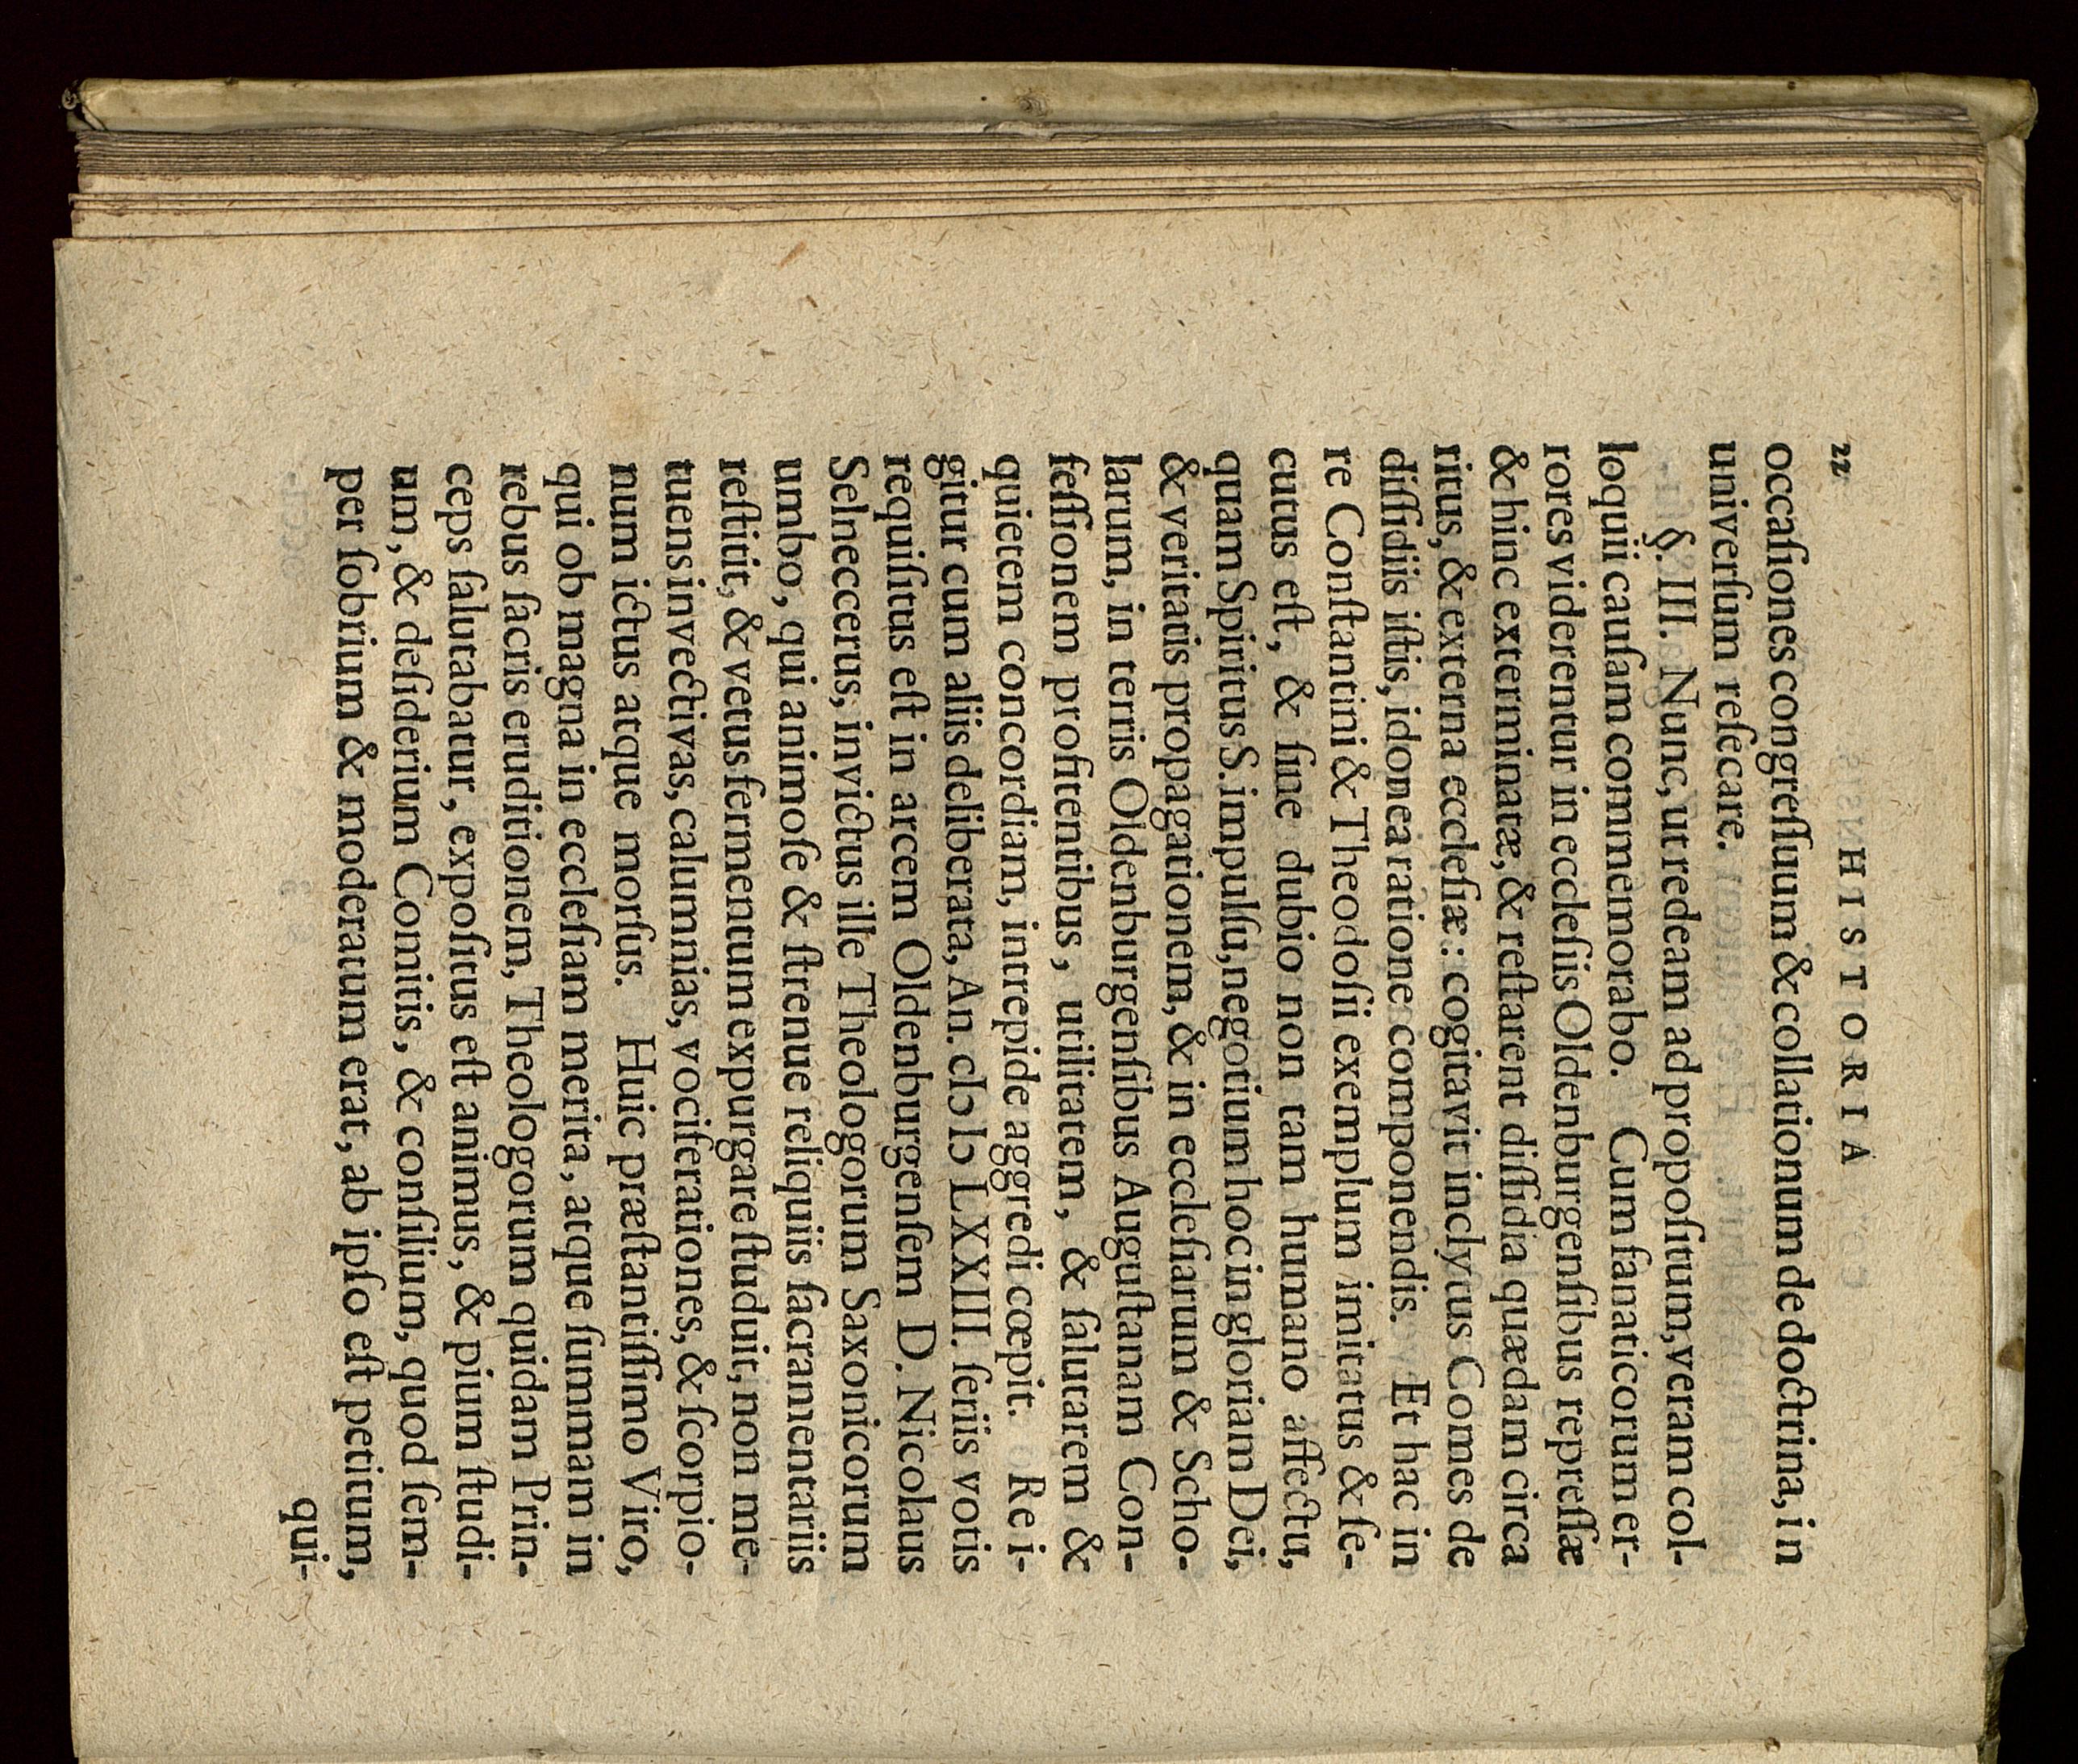 22 HISTORIA
occaſiones congreſſuum & collationum de doctrina, in
univerſum reſecare.
§. III. Nunc, ut redeam ad propoſitum, veram col-
loquii cauſam commemorabo. Cum fanaticorum er-
rores viderentur in eccleſiis Oldenburgenſibus repreſſæ
& hinc exterminatæ, & reſtarent diſſidia quædam circa
ritus, & externa eccleſiæ: cogitavit inclytus Comes de
diſſidiis iſtis, idonea ratione componendis. Et hac in
re Conſtantini & Theodoſii exemplum imitatus & ſe-
cutus eſt, & ſine dubio non tam humano affectu,
quam Spiritus S. impulſu, negotium hoc in gloriam Dei,
& veritatis propagationem, & in eccleſiarum & Scho-
larum, in terris Oldenburgenſibus Auguſtanam Con-
feſſionem profitentibus, utilitatem, & ſalutarem &
quietem concordiam, intrepide aggredi cœpit. Re i-
gitur cum aliis deliberata, An. cIɔ Iɔ LXXIII. ſeriis votis
requiſitus eſt in arcem Oldenburgenſem D. Nicolaus
Selneccerus, invictus ille Theologorum Saxonicorum
umbo, qui animoſe & ſtrenue reliquiis ſacramentariis
reſtitit, & vetus fermentum expurgare ſtuduit, non me-
tuens invectivas, calumnias, vociferationes, & ſcorpio-
num ictus atque morſus. Huic præſtantiſſimo Viro,
qui ob magna in eccleſiam merita, atque ſummam in
rebus ſacris eruditionem, Theologorum quidam Prin-
ceps ſalutabatur, expoſitus eſt animus, & pium ſtudi-
um, & deſiderium Comitis, & conſilium, quod ſem-
per ſobrium & moderatum erat, ab ipſo eſt petitum,
qui-